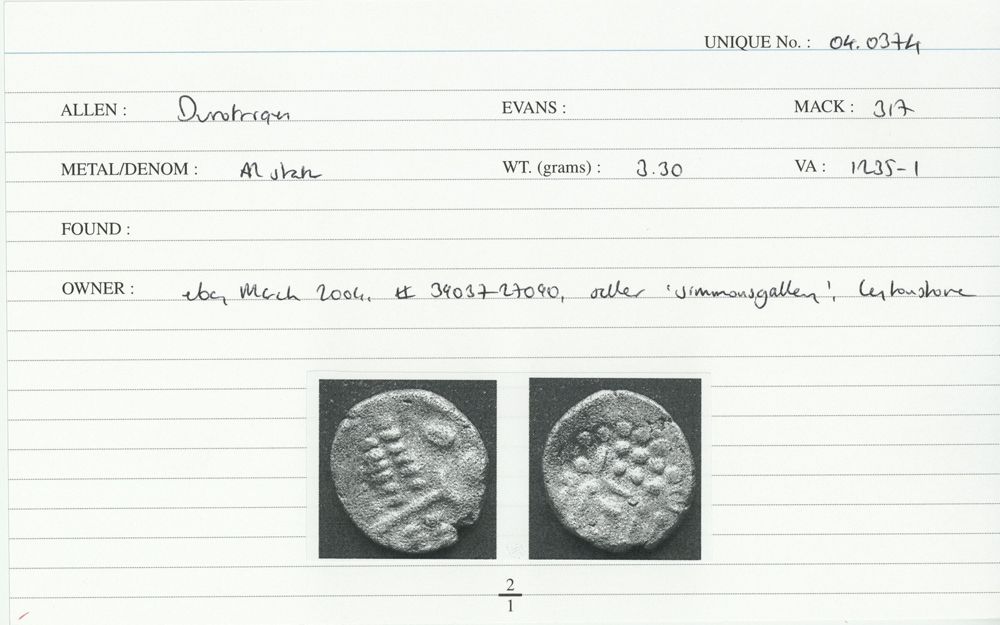 UNIQUE No. : 04.0374
ALLEN : Durotrigan EVANS : MACK : 317
METAL/DENOM : AR stater WT. (grams) : 3.30 VA : 1235-1
FOUND :
OWNER : ebay March 2004, # 39037-27090, seller 'simmonsgallery', Leytonstone
2
1